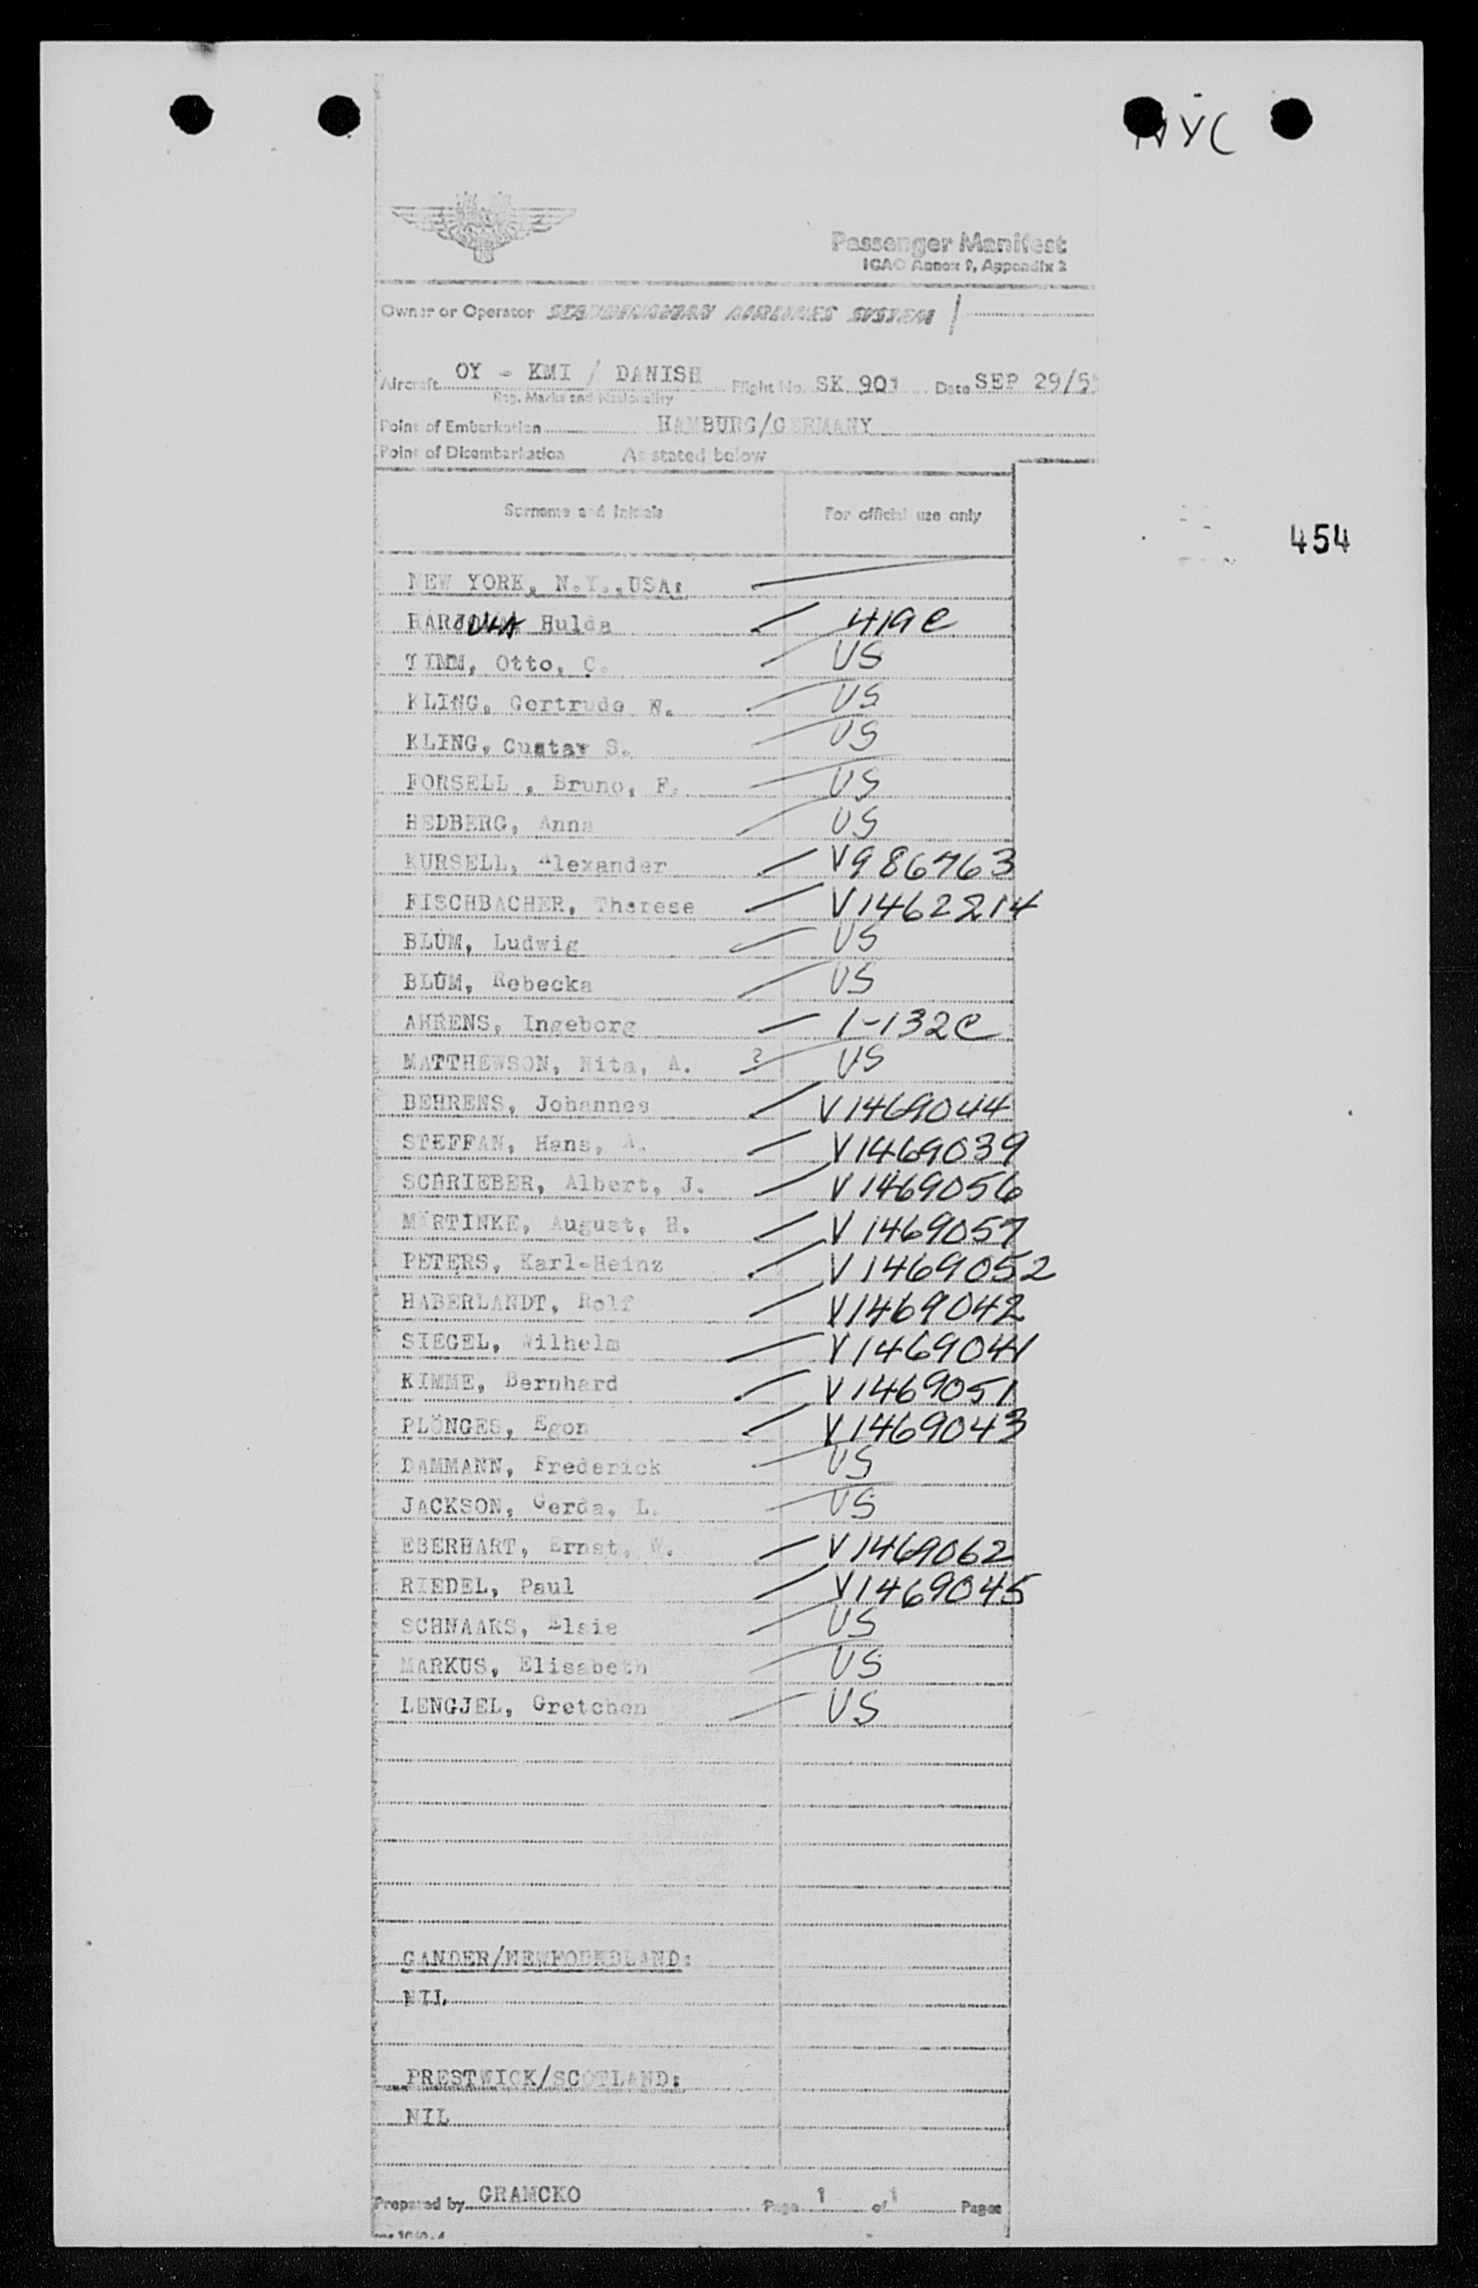 NYC
Passenger Manifest
ICAO Annex 9, Appendix 2
Owner or Operator SCANDINAVIAN AIRLINES SYSTEM
Aircraft OY - KMI / DANISH Flight No. SK 901 Date SEP 29/5
Reg. Marks and Nationality
Point of Embarkation HAMBURG/GERMANY
Point of Disembarkation As stated below
Surname and Initials For official use only
454
NEW YORK, N.Y., USA:
Hulda 419 C
TIMM, Otto, C. US
KLING, Gertrude W. US
KLING, Gustav S. US
FORSELL, Bruno, F. US
HEDBERG, Anna US
KURSELL, Alexander V986763
FISCHBACHER, Therese V1462214
BLUM, Ludwig US
BLUM, Rebecka US
AHRENS, Ingeborg 1-132C
MATTHEWSON, Nita, A. ? US
BEHRENS, Johannes V1469044
STEFFAN, Hans, A. V1469039
SCHRIEBER, Albert, J. V1469056
MARTINKE, August, H. V1469057
PETERS, Karl-Heinz V1469052
HABERLANDT, Rolf V1469042
SIEGEL, Wilhelm V1469041
KIMME, Bernhard V1469051
PLÖNGES, Egon V1469043
DAMMANN, Frederick US
JACKSON, Gerda, L. US
EBERHART, Ernst, W. V1469062
RIEDEL, Paul V1469045
SCHNAARS, Elsie US
MARKUS, Elisabeth US
LENGJEL, Gretchen US
GANDER/NEWFOUNDLAND:
NIL
PRESTWICK/SCOTLAND:
NIL
Prepared by GRAMCKO Page 1 of 1 Pages